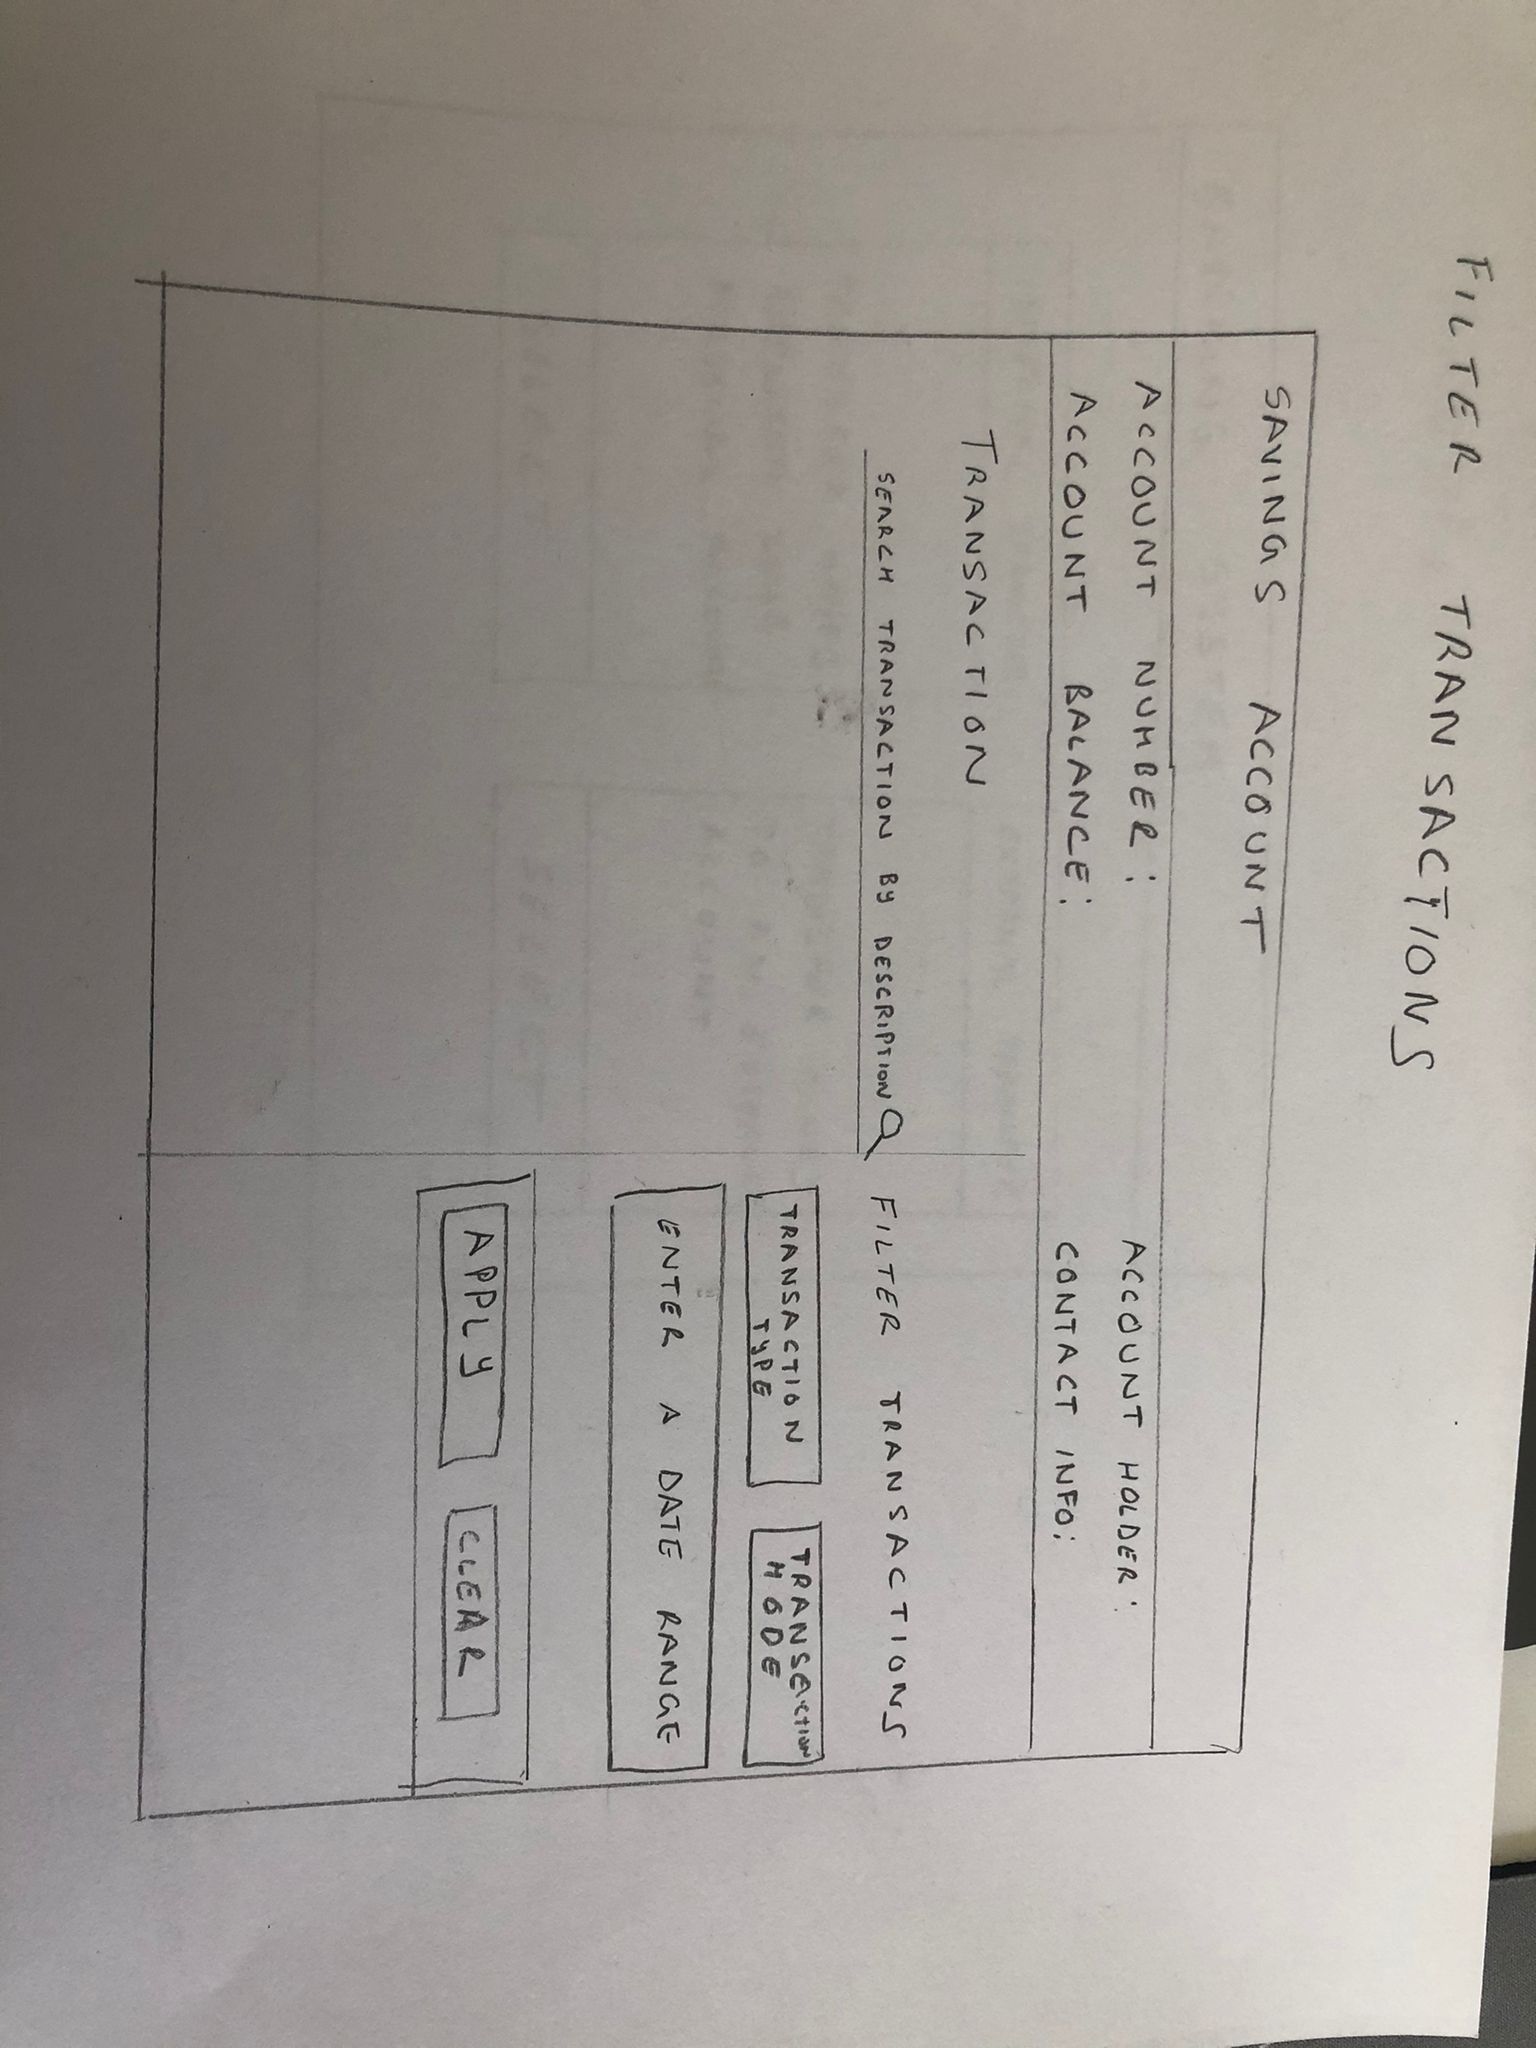 FILTER TRANSACTIONS
SAVINGS ACCOUNT
ACCOUNT NUMBER:
ACCOUNT HOLDER:
ACCOUNT BALANCE:
CONTACT INFO:
TRANSACTION
SEARCH TRANSACTION BY DESCRIPTION
FILTER TRANSACTIONS
TRANSACTION
TYPE
TRANSECTION
MODE
ENTER A DATE RANGE
APPLY
CLEAR